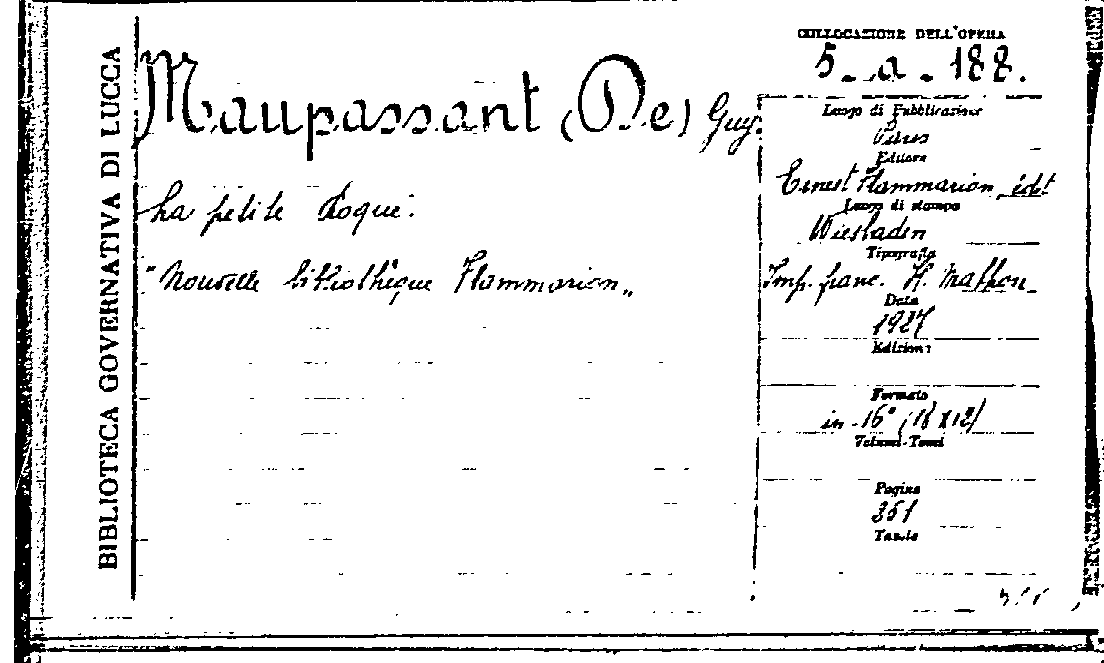 BIBLIOTECA GOVERNATIVA DI LUCCA
Maupassant (De) Guy.
La petite Roque.
"Nouvelle bibliothèque Flammarion„
COLLOCAZIONE DELL'OPERA
5. a. 188.
Luogo di Pubblicazione
Paris
Editore
Ernest Flammarion, édit
Luogo di stampa
Wiesbaden
Tipografia
Imp. franc. H.
Data
1927
Edizioni
Formato
in-16° (18x12)
Volumi-Tomi
Pagine
351
Tavole